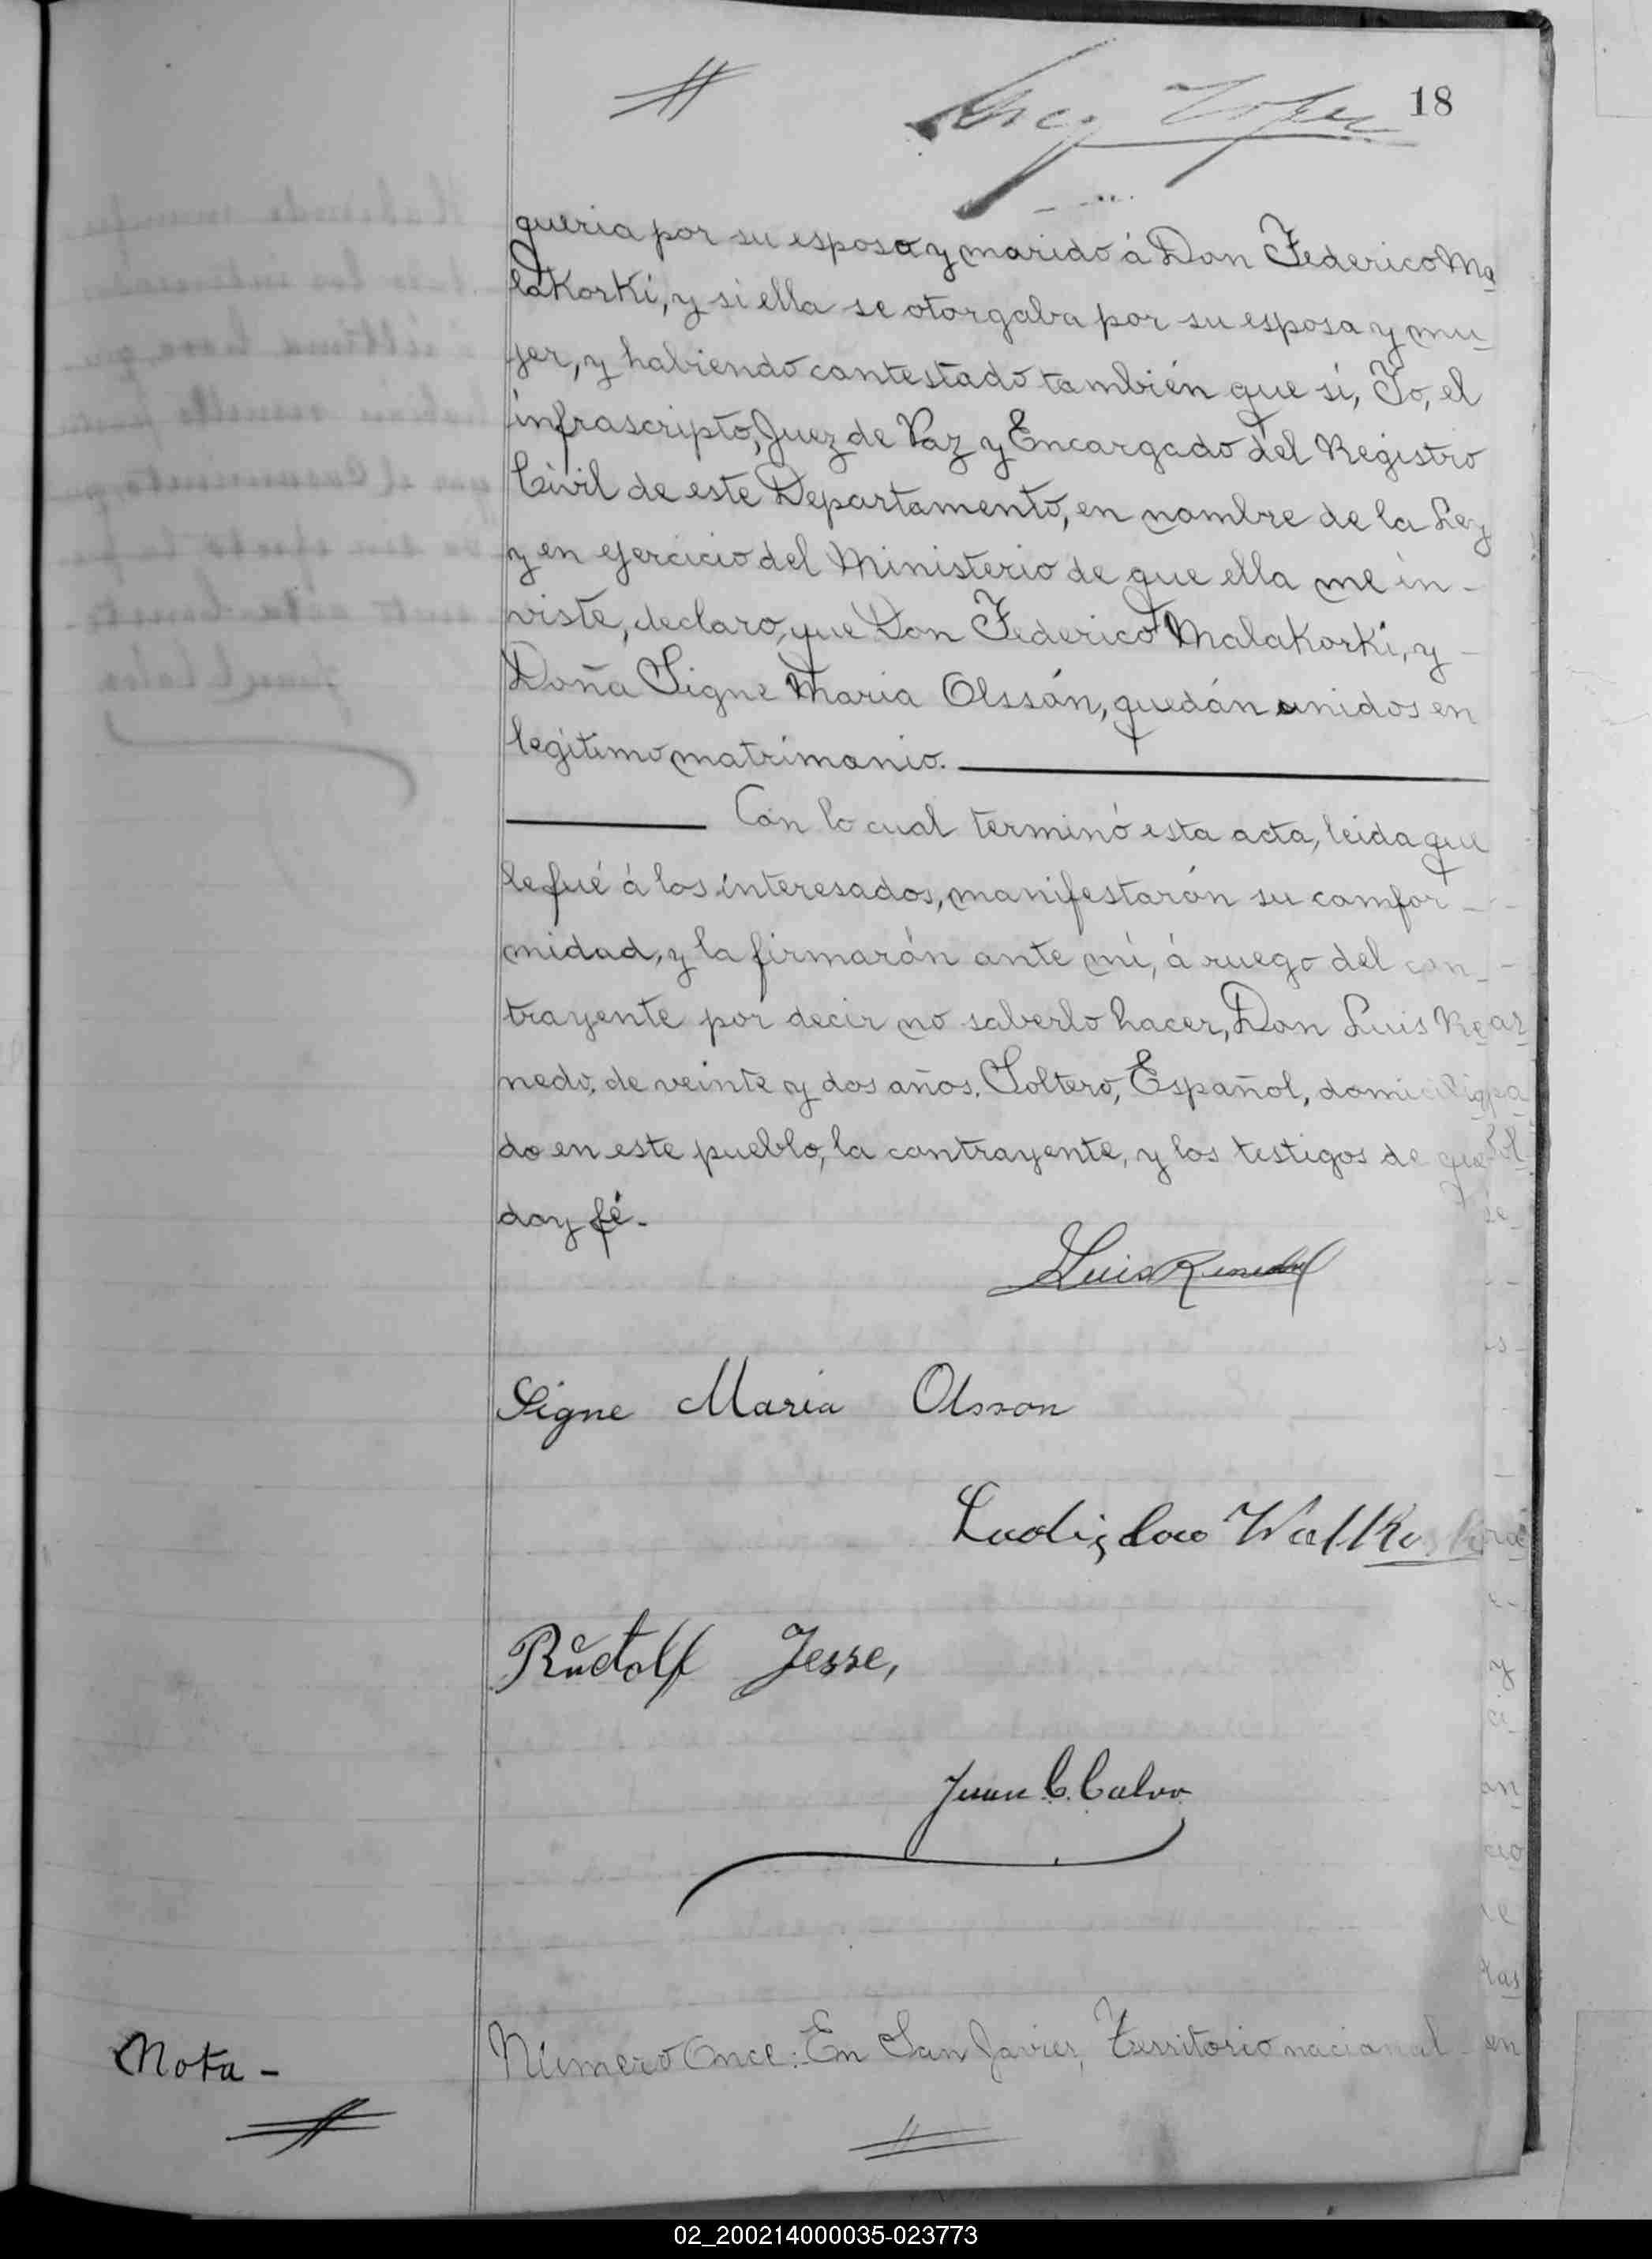 18
queria por su esposo y marido á Don Federico Ma
laKorKi, y si ella se otorgaba por su esposa y mu_
jer, y habiendo contestado también que si, Yo, el
infrascripto, Juez de Paz y Encargado del Registro
Civil de este Departamento, en nombre de la Ley
y en ejercicio del Ministerio de que ella me in-
viste, declaro, que Don Federico MalaKorKi, y
Doña Signe Maria Olssón, quedán unidos en
legitimo matrimonio.
Con lo cual terminó esta acta, leida que
le fué á los interesados, manifestarón su comfor
midad, y la firmarón ante mi, á ruego del con_
trayente por decir no saberlo hacer, Don Luis Re
nedo, de veinte y dos años. Soltero, Español, domicilia
do en este pueblo, la contrayente, y los testigos de que
doy fé.
Luis Renedo
Signe Maria Olsson
Ladislao
Rudolf Jesse,
Juan C. Calvo
Nota -
Número Once: En San Javier, Territorio nacional
02_200214000035-023773